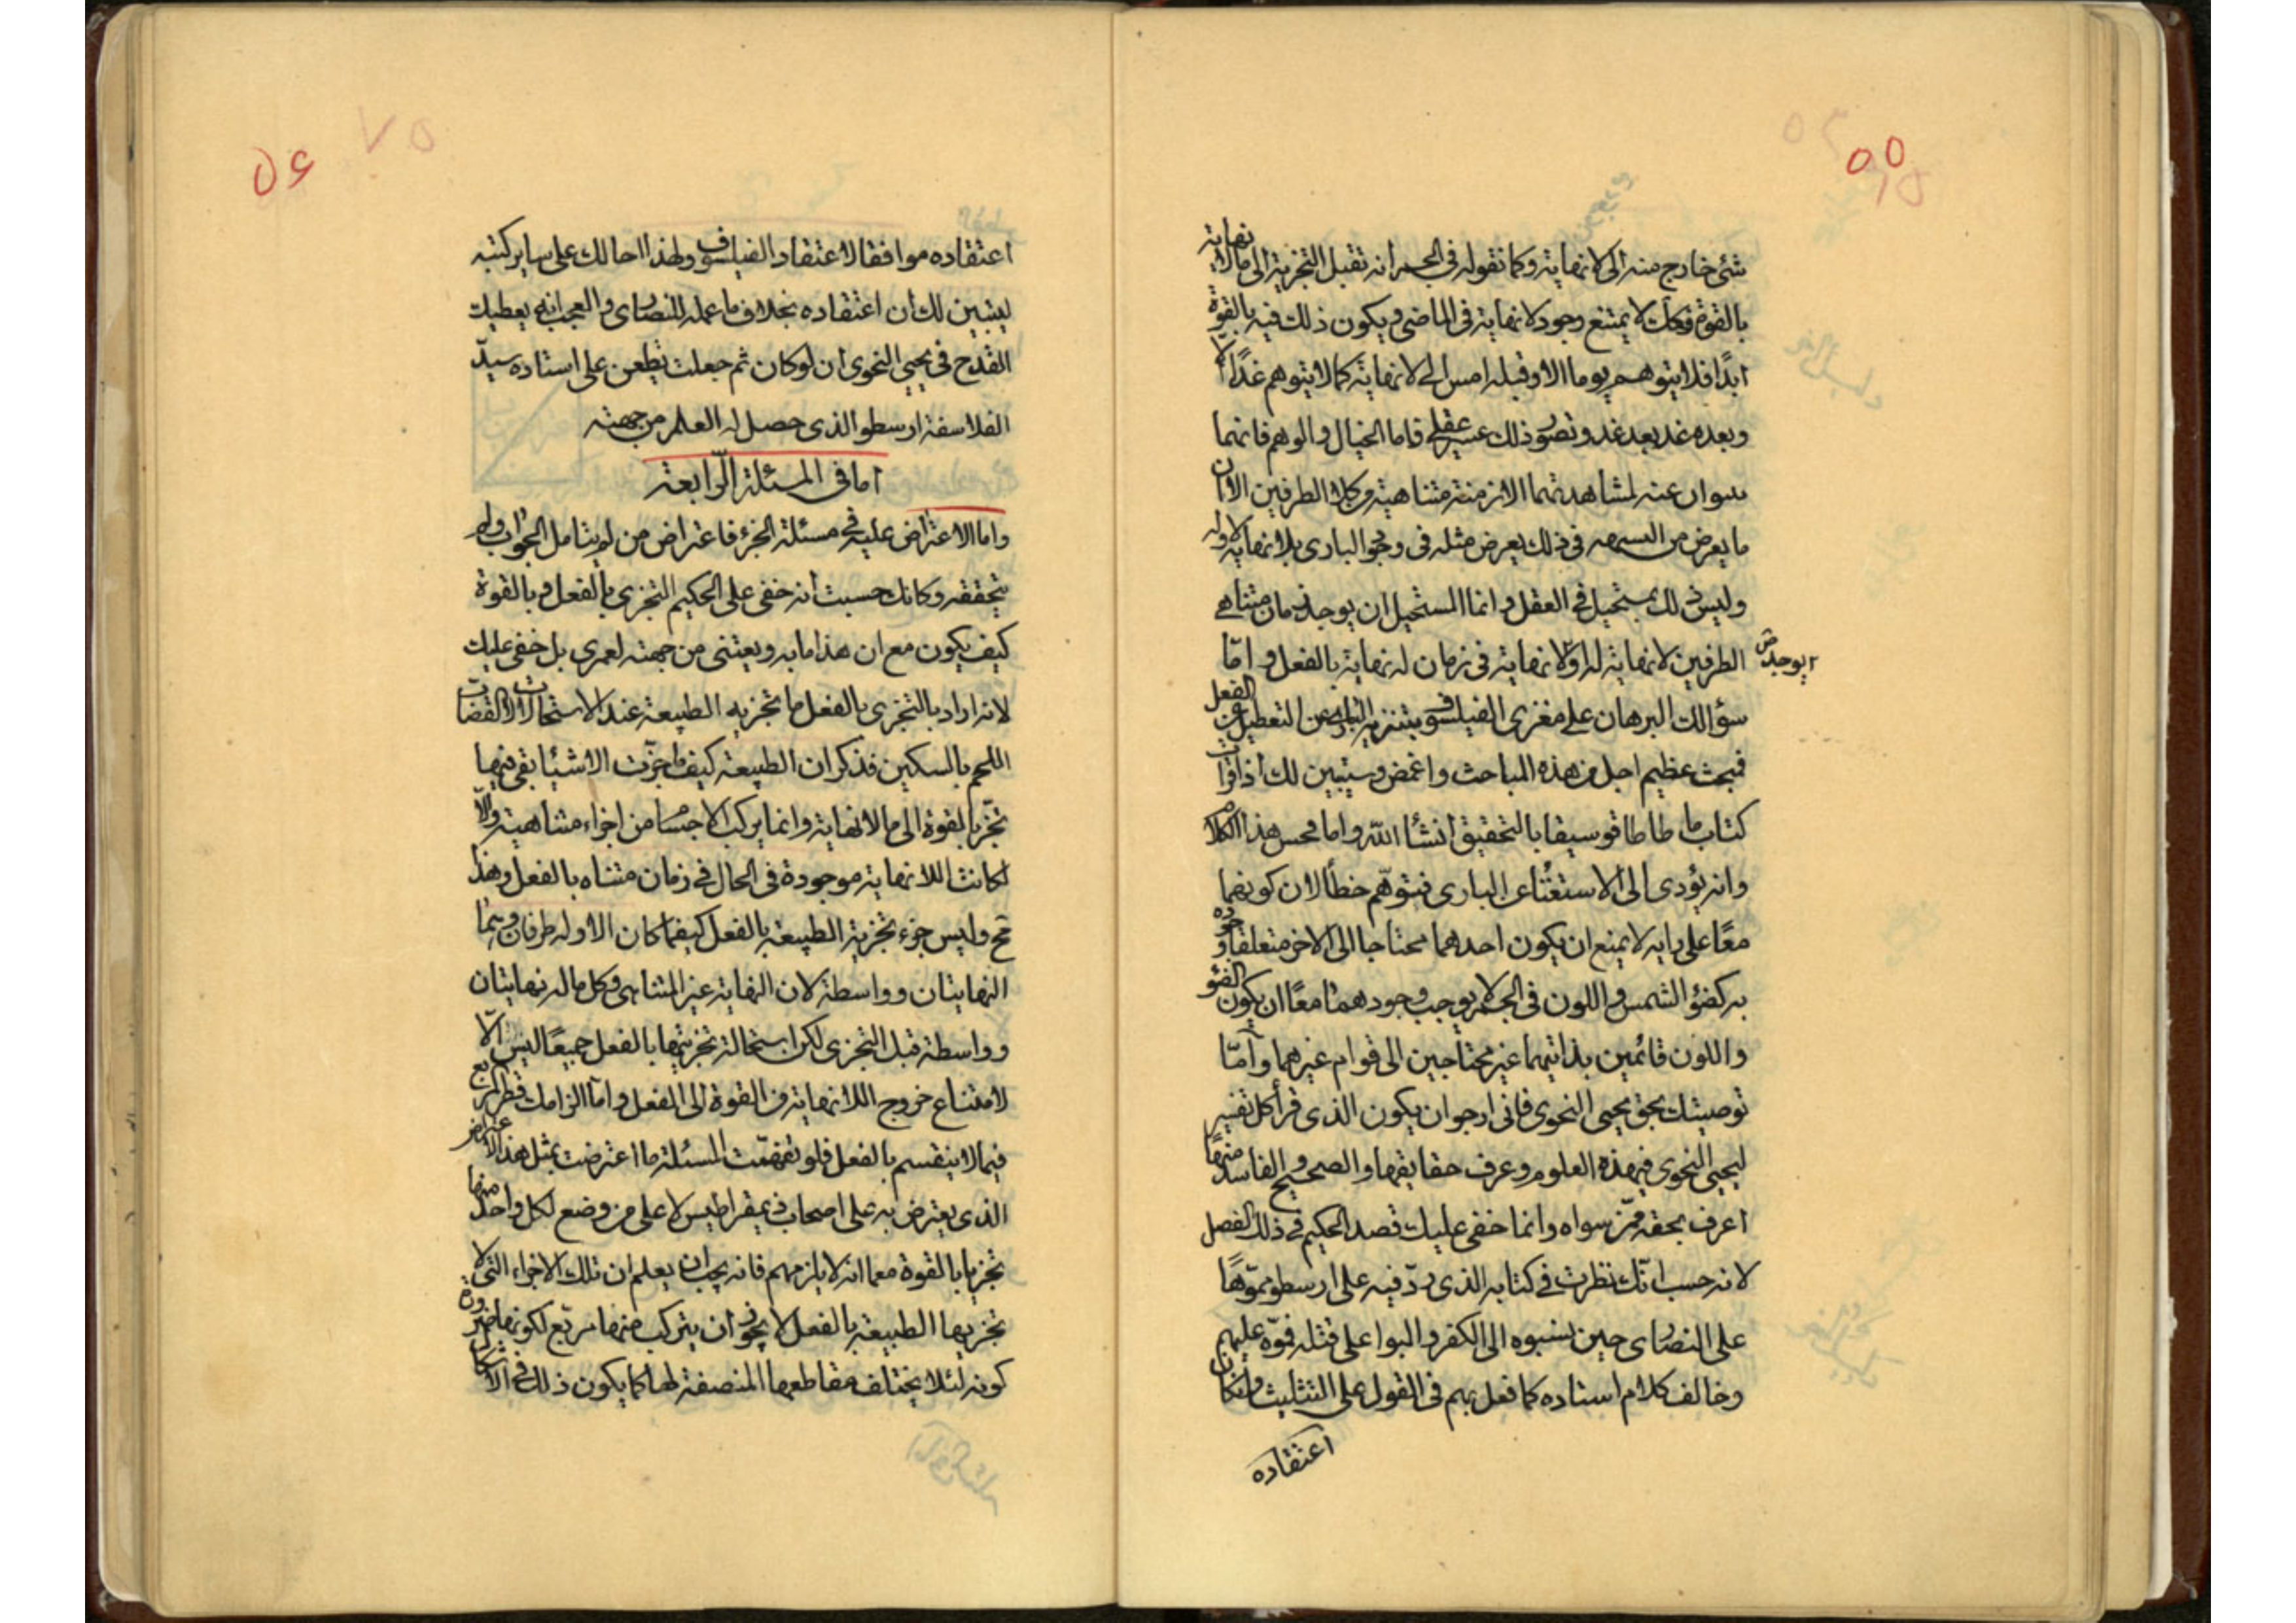 ٥٥
شئ خارج منه الى لا نهاية وكما نقوله فى الجسم انه تقبل التجزية الى مالا نهاية
بالقوة فكك لا يمتنع وجود لا نهاية فى الماضى ويكون ذلك فيه بالقوة
ابدًا فلا يتوهم يوما الا وقبله امس الى لا نهاية كما لا يتوهم غدًا الا
وبعده غد بعد غد وتصور ذلك عسير عقلى فاما الخيال والوهم فانهما
ينبوان عنه لمشاهدتهما الازمنة متناهية وكلا الطرفين الا ان
ما يعرض من فى ذلك يعرض مثله فى وجود البارى بلا نهاية لاوله
وليس ذلك بمستحيل فى العقل وانما المستحيل ان يوجد زمان متناهى
الطرفين لا نهاية له اولا نهاية فى زمان له نهاية بالفعل واما
ايوجد ض
سؤالك البرهان على مغزى الفيلسوف بتنزيه البارى عن التعطيل عن الفعل
فمبحث عظيم اجل من هذه المباحث واغمض وسيتبين لك اذا قرأت
كتاب ما طاطافوسيقا بالتحقيق انشأ الله واما محسن هذا الكلام
وانه يؤدى الى الاستغنا عن البارى فتوهم خطأ لان كونهما
معًا على رايه لا يمنع ان يكون احدهما محتاجا الى الاخر متعلقا وجوده
به كضؤ الشمس واللون فى الجسم لا يوجب وجودهما معًا ان يكون الضؤ
واللون قائمين بذاتيهما غير محتاجين الى قوام غيرهما وامّا
توصيتك بحق يحيى النحوى فانى ارجو ان يكون الذى قرأ كل تفسير
ليحيى النحوى فى هذه العلوم وعرف حقايقها والصحيح والفاسد منها
اعرف بحقه ممن سواه وانما خفى عليك قصد الحكيم فى ذلك الفصل
لانه حسب انّك نظرت فى كتابه الذى ردّ فيه على ارسطو مموّهًا
على النصارى حين نسبوه الى الكفر والبوا على قتله فموّه عليهم
وخالف كلام استاده كما فعل بهم فى القول على التثليث وان كان
اعتقاده
٥٦
اعتقاده موافقا لاعتقاد الفيلسوف ولهذا احالك على ساير كتبه
ليتبين لك ان اعتقاده بخلاف ما عمله للنصارى والعجب انه يعطيك
القدح فى يحيى النحوى ان لو كان ثم جعلت تطعن على استاده سيدّ
الفلاسفة ارسطو الذى حصل له العلم من جهته
اما فى المسئلة الرّابعة
واما الاعتراض عليه فى مسئلة الجزء فاعتراض من لم يتامل الجواب ولم
يتحققه وكانك حسبت انه خفى على الحكيم التجزى بالفعل وبالقوة
كيف يكون مع ان هذا مابه ويعتنى من جهته لعمرى بل خفى عليك
لانه اراد بالتجزى بالفعل ما تجزيه الطبيعة عند الاستحالات الا
اللحم بالسكين فذكر ان الطبيعة كيف ما جزّت الاشيا بقى فيها
تجز بالقوة الى ما لا نهاية وانما يركب الاجسام من اجزاء متناهية والّا
لكانت اللا نهاية موجودة فى الحال فى زمان متناه بالفعل وهذا
مح وليس جزء تجزية الطبيعة بالفعل كيفما كان الا وله طرفان وهما
النهايتان وواسطة لان النهاية غير المتناهى وكل ماله نهايتان
وواسطة قبل التجزى لكن استحالة تجزيتها بالفعل جميعًا ليس الّا
لامتناع خروج اللا نهاية من القوة الى الفعل واما الزامك قطر المربع
فيما لا ينقسم بالفعل فلو تفهّمت المسئلة ما اعترضت بمثل هذا الاعتراض
الذى يعترض به على اصحاب ذيمقراطيس لا على من وضع لكل واحد منها
تجزيا بالقوة معما انه لا يلزمهم فانه يجب ان يعلم ان تلك الاجزاء التى لا
تجزيها الطبيعة بالفعل لا يجوز ان يتركب منها مربّع لكونها ضرورة
كونه لئلا يختلف مقاطعها المنصفة لها كما يكون ذلك فى الاشكال